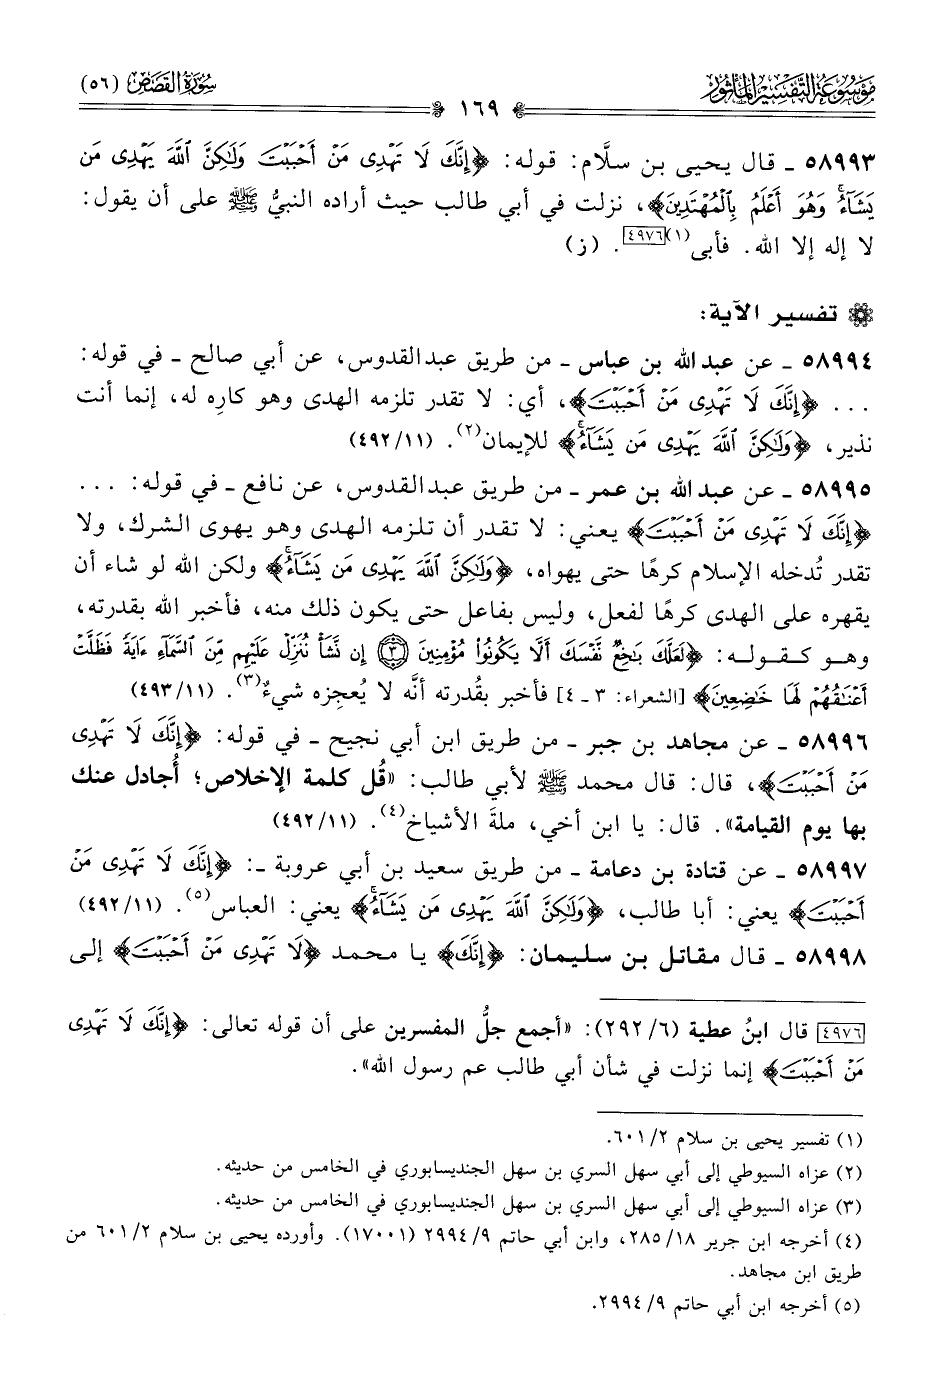 مَوْسُوعَةُ التَّفْسِيرِ المَأْثُورِ
سُورَةُ القَصَصِ (٥٦)
١٦٩
٥٨٩٩٣ ـ قال يحيى بن سلَّام: قوله: ﴿إِنَّكَ لَا تَهْدِى مَنْ أَحْبَبْتَ وَلَٰكِنَّ ٱللَّهَ يَهْدِى مَن
يَشَآءُۚ وَهُوَ أَعْلَمُ بِٱلْمُهْتَدِينَ﴾، نزلت في أبي طالب حيث أراده النبيُّ ﷺ على أن يقول:
لا إله إلا الله. فأبى(١)[٤٩٧٦]. (ز)
تفسير الآية:
٥٨٩٩٤ ـ عن عبد الله بن عباس ـ من طريق عبدالقدوس، عن أبي صالح ـ في قوله:
... ﴿إِنَّكَ لَا تَهْدِى مَنْ أَحْبَبْتَ﴾، أي: لا تقدر تلزمه الهدى وهو كارِه له، إنما أنت
نذير، ﴿وَلَٰكِنَّ ٱللَّهَ يَهْدِى مَن يَشَآءُۚ﴾ للإيمان(٢). (١١/٤٩٢)
٥٨٩٩٥ ـ عن عبد الله بن عمر ـ من طريق عبدالقدوس، عن نافع ـ في قوله: ...
﴿إِنَّكَ لَا تَهْدِى مَنْ أَحْبَبْتَ﴾ يعني: لا تقدر أن تلزمه الهدى وهو يهوى الشرك، ولا
تقدر تُدخله الإسلام كرهًا حتى يهواه، ﴿وَلَٰكِنَّ ٱللَّهَ يَهْدِى مَن يَشَآءُۚ﴾ ولكن الله لو شاء أن
يقهره على الهدى كرهًا لفعل، وليس بفاعل حتى يكون ذلك منه، فأخبر الله بقدرته،
وهو كقوله: ﴿لَعَلَّكَ بَٰخِعٌ نَّفْسَكَ أَلَّا يَكُونُوا۟ مُؤْمِنِينَ ٣ إِن نَّشَأْ نُنَزِّلْ عَلَيْهِم مِّنَ ٱلسَّمَآءِ ءَايَةً فَظَلَّتْ
أَعْنَٰقُهُمْ لَهَا خَٰضِعِينَ﴾ [الشعراء: ٣ ـ ٤] فأخبر بقُدرته أنَّه لا يُعجِزه شيءٌ(٣). (١١/٤٩٣)
٥٨٩٩٦ ـ عن مجاهد بن جبر ـ من طريق ابن أبي نجيح ـ في قوله: ﴿إِنَّكَ لَا تَهْدِى
مَنْ أَحْبَبْتَ﴾، قال: قال محمد ﷺ لأبي طالب: «قُل كلمة الإخلاص؛ أُجادل عنك
بها يوم القيامة». قال: يا ابن أخي، ملةَ الأشياخ(٤). (١١/٤٩٢)
٥٨٩٩٧ ـ عن قتادة بن دعامة ـ من طريق سعيد بن أبي عروبة ـ: ﴿إِنَّكَ لَا تَهْدِى مَنْ
أَحْبَبْتَ﴾ يعني: أبا طالب، ﴿وَلَٰكِنَّ ٱللَّهَ يَهْدِى مَن يَشَآءُۚ﴾ يعني: العباس(٥). (١١/٤٩٢)
٥٨٩٩٨ ـ قال مقاتل بن سليمان: ﴿إِنَّكَ﴾ يا محمد ﴿لَا تَهْدِى مَنْ أَحْبَبْتَ﴾ إلى
[٤٩٧٦] قال ابنُ عطية (٦/٢٩٢): «أجمع جلُّ المفسرين على أن قوله تعالى: ﴿إِنَّكَ لَا تَهْدِى
مَنْ أَحْبَبْتَ﴾ إنما نزلت في شأن أبي طالب عم رسول الله».
(١) تفسير يحيى بن سلام ٢/٦٠١.
(٢) عزاه السيوطي إلى أبي سهل السري بن سهل الجنديسابوري في الخامس من حديثه.
(٣) عزاه السيوطي إلى أبي سهل السري بن سهل الجنديسابوري في الخامس من حديثه.
(٤) أخرجه ابن جرير ١٨/٢٨٥، وابن أبي حاتم ٩/٢٩٩٤ (١٧٠٠١). وأورده يحيى بن سلام ٢/٦٠١ من
طريق ابن مجاهد.
(٥) أخرجه ابن أبي حاتم ٩/٢٩٩٤.